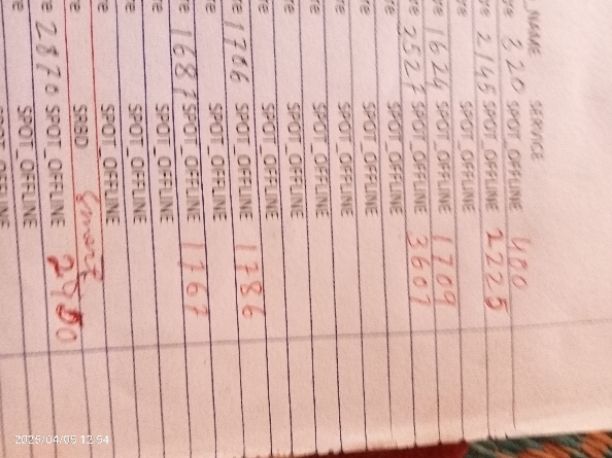 _NAME SERVICE
ve 320 SPOT_OFFLINE 400
ve 2145 SPOT_OFFLINE 2225
ve SPOT_OFFLINE
ve 1624 SPOT_OFFLINE 1709
ve 2527 SPOT_OFFLINE 3607
ve SPOT_OFFLINE
ve SPOT_OFFLINE
ve SPOT_OFFLINE
ve SPOT_OFFLINE
ve SPOT_OFFLINE
ve SPOT_OFFLINE
ve 1706 SPOT_OFFLINE 1786
ve SPOT_OFFLINE
ve 1687 SPOT_OFFLINE 1767
ve SPOT_OFFLINE
ve SPOT_OFFLINE
ve SPOT_OFFLINE
ve SRBD Smart
ve 2870 SPOT_OFFLINE
SPOT_OFFLINE
SPOT_OFFLINE
2026/04/09 12:54